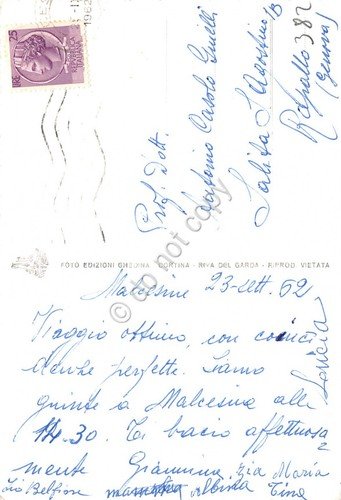 LIRE 25
Prof. Dott.
Antonio Casolo Ginelli
Salita S. Agostino 1B
Rapallo 382
(Genova)
do not copy
FOTO EDIZIONI GHEDINA - CORTINA - RIVA DEL GARDA - RIPROD. VIETATA
Malcesine 23-sett. 62
Viaggio ottimo, con coinci
denze perfette. Siamo
giunte a Malcesine alle
14.30. Ti bacio affettuosa
mente Giannina Zia Maria
Zio Belfiore mamma Albina Tina